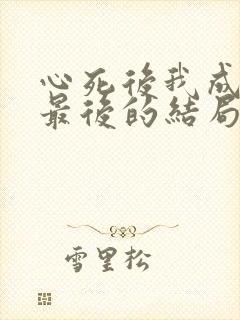 心死後我成
最後的結局
雪里松